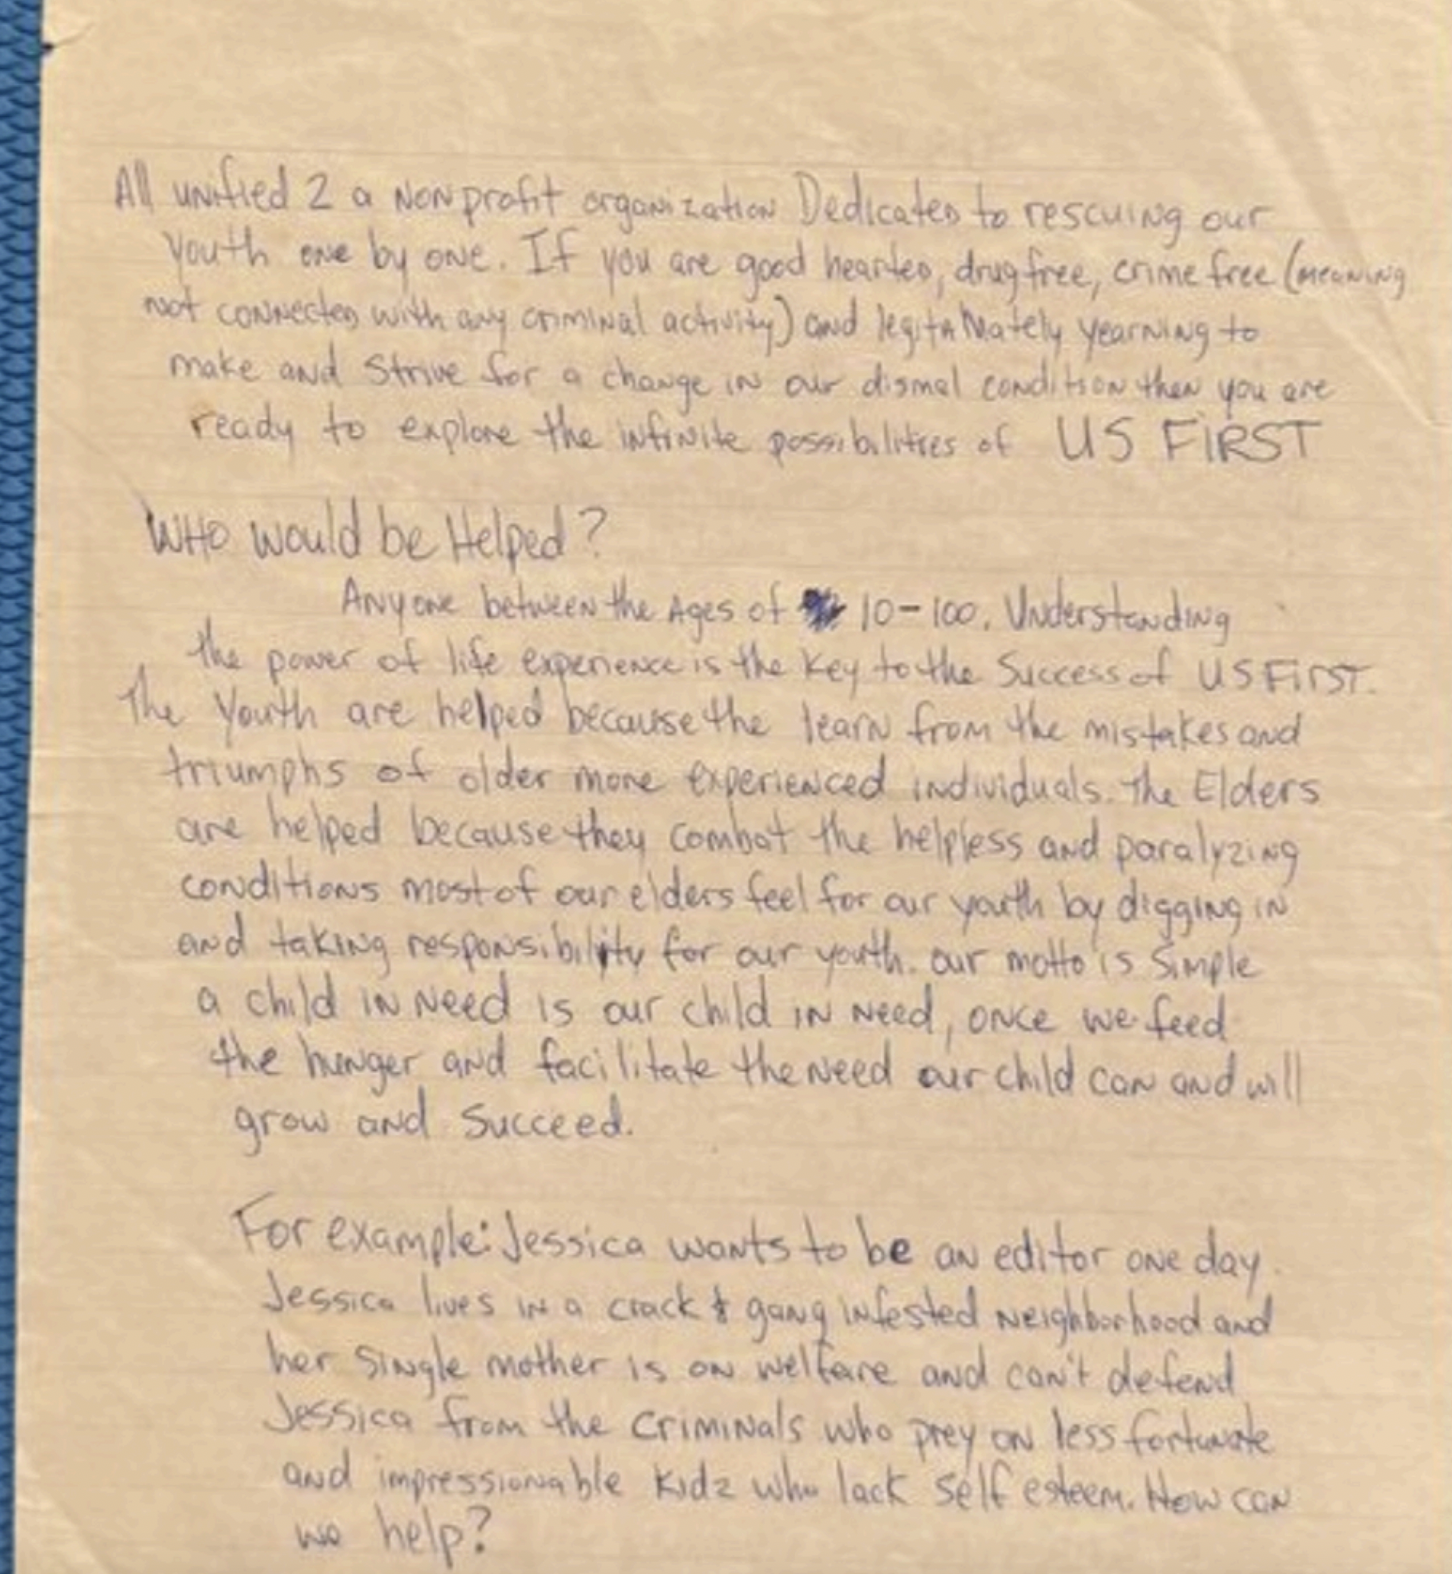 All unified 2 a Nonprofit organization Dedicated to rescuing our
Youth one by one. If you are good hearted, drugfree, crime free (meaning
not connected with any criminal activity) and legitamately yearning to
make and Strive for a change in our dismal condition then you are
ready to explore the infinite possibilities of US FIRST
WHO would be Helped?
Anyone between the Ages of 10-100. Understanding
the power of life experience is the Key to the Success of US FIRST.
The Youth are helped because the learn from the mistakes and
triumphs of older more experienced individuals. The Elders
are helped because they combat the helpless and paralyzing
conditions most of our elders feel for our youth by digging in
and taking responsibility for our youth. our motto is Simple
a child in Need is our child in Need, once we feed
the hunger and facilitate the Need our child can and will
grow and Succeed.
For example: Jessica wants to be an editor one day.
Jessica lives in a crack & gang infested Neighborhood and
her Single mother is on welfare and can't defend
Jessica from the Criminals who prey on less fortunate
and impressionable Kidz who lack Self esteem. How can
we help?